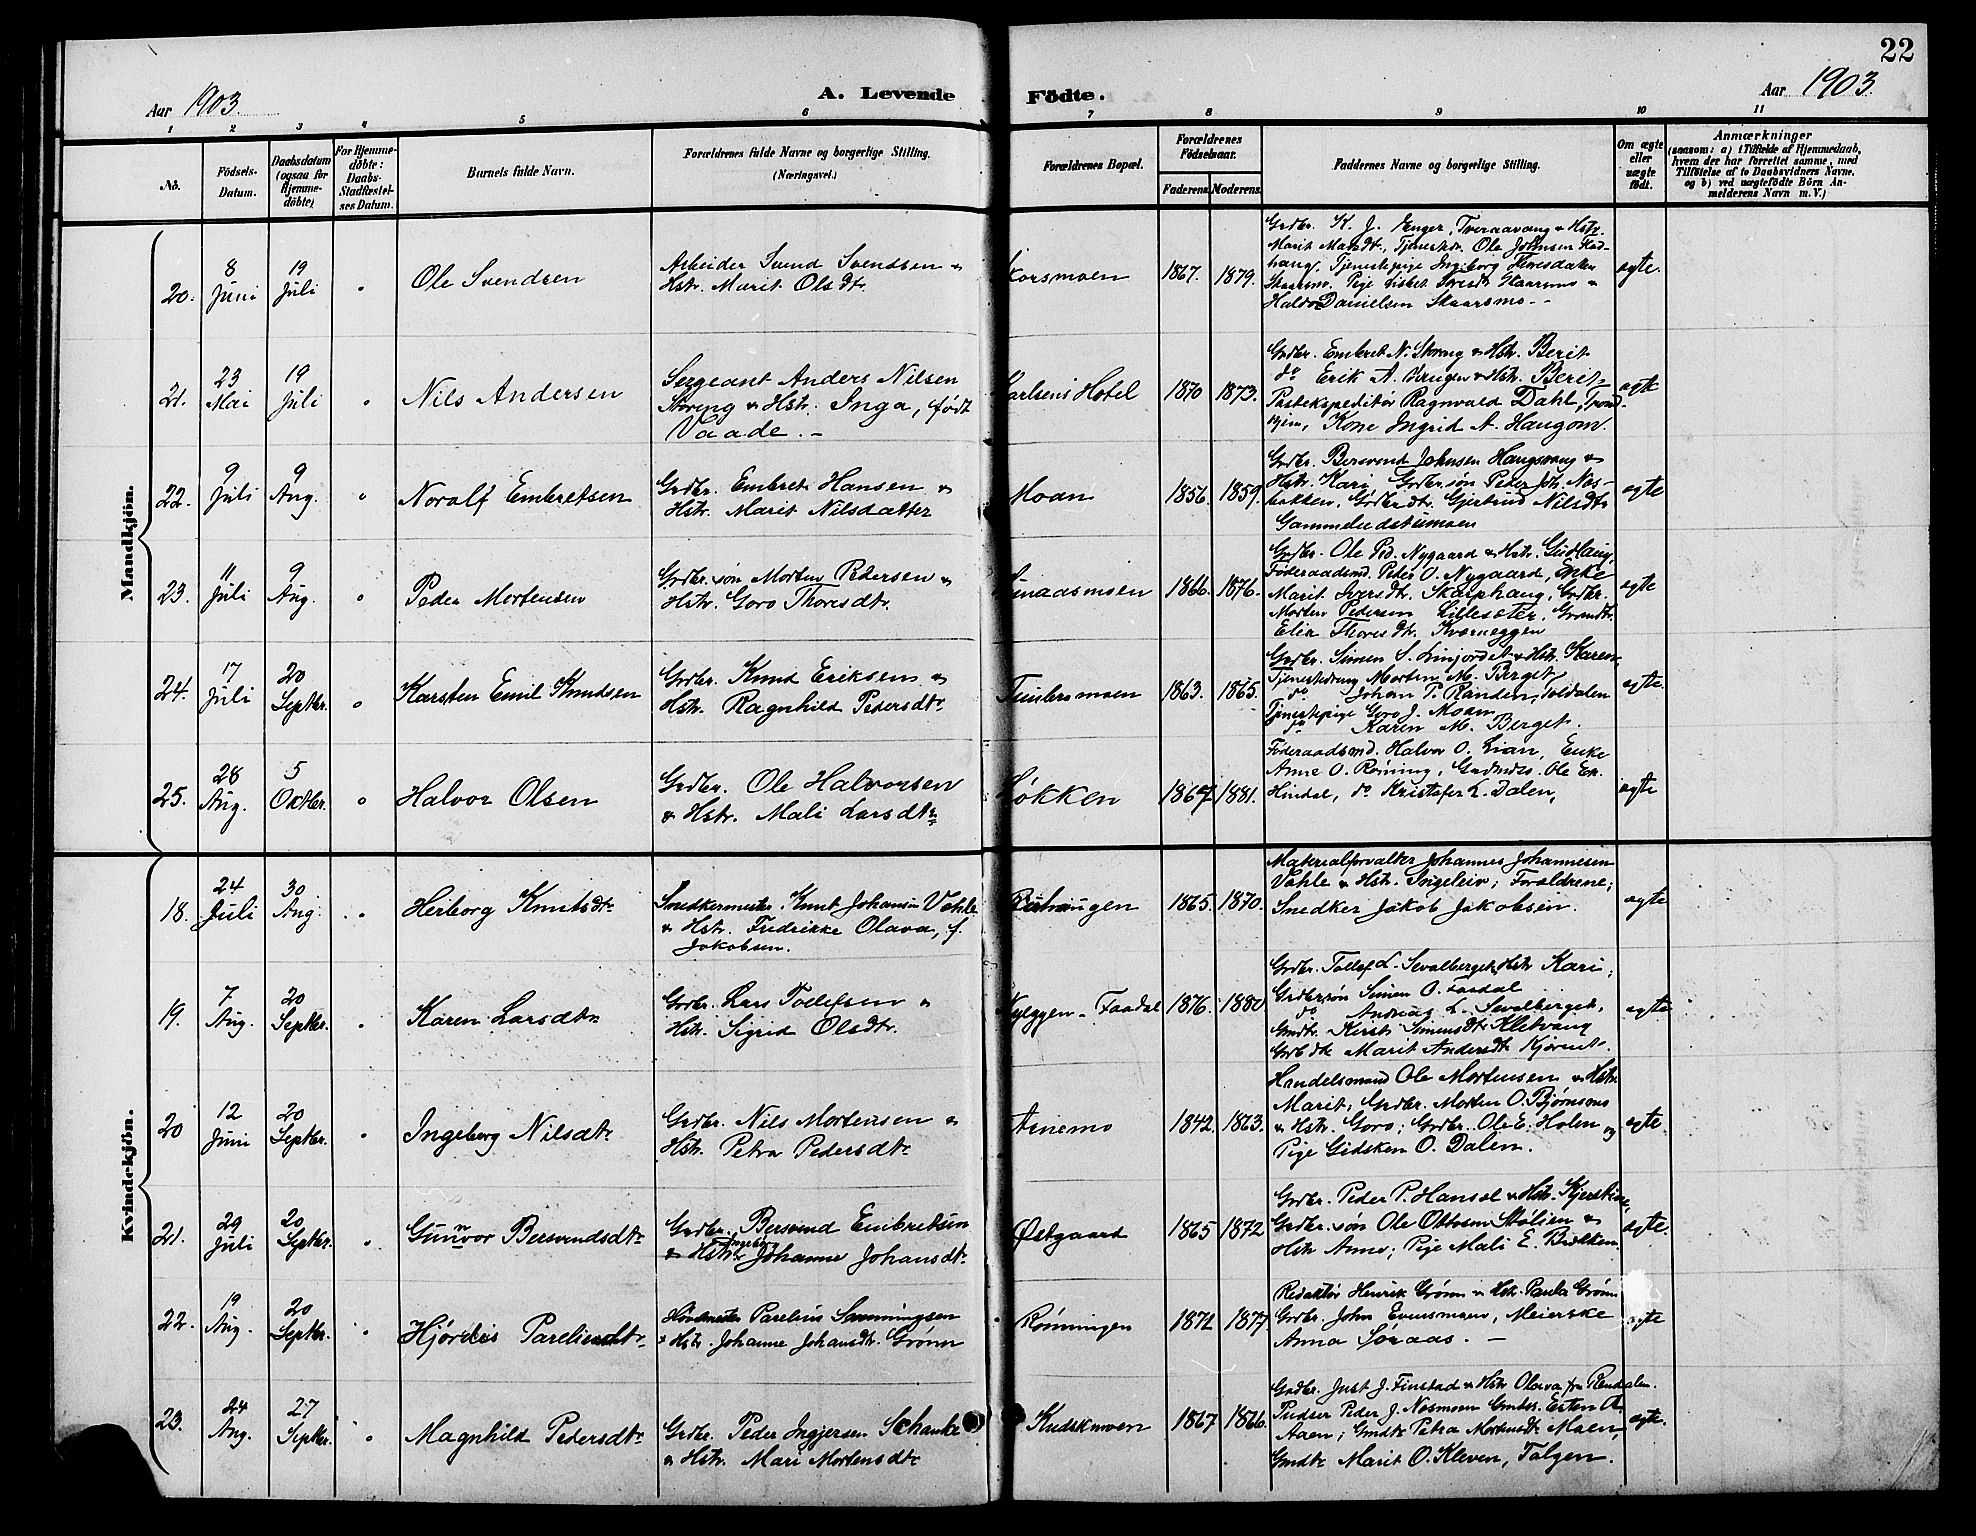 22
Aar 1903.
A. Levende Födte.
Aar 1903.
1 2 3 4 5 6 7 8 9 10 11
No.
Födsels-Datum.
Daabsdatum (ogsaa for Hjemme-döbte)
For Hjemme-döbte: Daabs-Stadfæstel-ses Datum.
Barnets fulde Navn.
Forældrenes fulde Navne og borgerlige Stilling. (Næringsvei.)
Forældrenes Bopæl.
Forældrenes Födselsaar.
Faderens. Moderens.
Faddernes Navne og borgerlige Stilling.
Om ægte eller uægte födt.
Anmærkninger
(saasom: a) i Tilfælde af Hjemmedaab, hvem der har forrettet samme, med Tilföielse af to Daabsvidners Navne, og b) ved uægtefödte Börn An-melderens Navn m. V.)
Mandkjön.
20. 8 Juni 19 Juli " Ole Svendsen
Arbeider Svend Svendsen &
Hstr. Marit Olsdtr.
Korsmoen 1867. 1879.
Grdbr. K. J. Enger, Tveraavang & Hstr.
Marit Mandt., Ole Johnsen
Tjenestepige Ingeborg Thoresdatter
Skaarsmo. Pige Lisbet Toresdtr Skaarsmo &
Haldor Danielsen Skaarsmo. --
ægte.
21. 23 Mai 19 Juli " Nils Andersen
Sergeant Anders Nilsen
Storeng & Hstr. Inga, født
Vaade. -
Karlsens Hotel 1870 1873.
Grdbr. Embret N. Storeng & Hstr. Berit
do Erik A. & Hstr. Berit
Postekspeditør Ragnvald Dahl, Trond-
hjem, Kone Ingrid A. Haugom.
ægte
22. 9 Juli 9 Aug. " Noralf Embretsen
Grdbr. Embret Hansen &
Hstr. Marit Nilsdatter
Moan 1856. 1859.
Grdbr. Bersvend Johnsen Haugsvang &
Hstr. Kari Grdbr.søn Peder Joh. Næs-
bakken, Grdbr.dtr. Gjertrud Nilsdtr
Gammeludstumoen
ægte
23. 11 Juli 9 Aug. " Peder Mortensen
Grdbr.søn Morten Pedersen &
Hstr. Goro Thoresdtr.
Tunaasmoen 1866. 1876.
Grdbr. Ole Ped. Nygaard & Hstr. Gudlaug,
Føderaadsmd. Peder O. Nygaard, Enke
Marit Iversdtr. Skarphaug, Grdbr.
Morten Pedersen Lillesæter,
Elin Thoresdtr. Kværneggen
ægte
24. 17 Juli 20 Septbr. " Karsten Emil Knudsen
Grdbr. Knud Eriksen &
Hstr. Ragnhild Pedersdtr.
1863. 1865.
Grdbr. Simen S. Linjordet & Hstr. Karen
Morten M. Berget
do Johan P. Randen,
Tjenestepige Goro J. Moan
do Karen M. Berget.
ægte.
25. 28 Aug. 5 Oktbr. " Halvor Olsen
Grdbr. Ole Halvorsen
& Hstr. Mali Larsdtr.
Løkken 1867 1881.
Føderaadsmd. Halvor O. Lian, Enke
Anne O. Røning, Ole En.
Hindal, do Kristofer L. Dalen,
ægte
Kvindekjön.
18. 24 Juli 30 Aug. " Herborg Knutsdtr.
Snedkermester Knut Johansen Vahle
& Hstr. Fredrikke Olava, f.
Jakobsen.
1865. 1870.
Materialforvalter Johannes Johannesen
Vahle & Hstr. Ingeleiv; Forældrene;
Snedker Jakob Jakobsen.
ægte
19. 7 Aug. 20 Septbr. " Karen Larsdtr.
Grdbr. Lars Tollefsen &
Hstr. Sigrid Olsdtr.
Nyeggen - Faadal 1876. 1880
Grdbr. Tollef L. Sevalberget, Hstr Kari;
Grdbrsøn Simen O. Faadal
do Andreas L. Sevalberget,
Gmdtr. Kersti Simensdtr. Kletvang
Marit Andersdtr. Kjørnet.
ægte
20 12 Juni 20 Septbr. " Ingeborg Nilsdtr.
Grdbr. Nils Mortensen &
Hstr. Petra Pedersdtr.
Arnemo 1842. 1863.
Handelsmand Ole Mortensen & Hstr.
Marit, Grdbr. Morten O. Bjørnsmo
& Hstr. Goro; Grdbr. Ole E. Holen og
Pige Gidsken O. Dalen.
ægte.
21. 29 Juli 20 Septbr. " Gunvor Bersvendsdtr.
Grdbr. Bersvend Embretsen
& Hstr. Ingeborg Johanne Johansdtr.
Østgaard 1865 1872
Grdbr. Peder P. Hansel & Hstr. Kjerstine,
Grdbr.søn Ole Ottosen Stølien &
Hstr Anne; Pige Mali E. Bakken.
ægte.
22. 19 Aug. 20 Septbr. " Hjørdis Pareliusdtr.
Parelius Sammingsen
& Hstr. Johanne Johansdtr. Grønn
Rønningen 1872 1877
Redaktør Henrik Grønn & Hstr. Paula Grønn
Grdbr John Evensmoen, Meierske
Anna Søraas. -
ægte
23. 24 Aug. 27 Septbr. " Magnhild Pedersdtr.
Grdbr. Peder Ingjersen Schanke
& Hstr. Mari Mortensdtr.
Kudskmoen 1867 1866.
Grdbr. Just J. Finstad & Hstr Olava fra Rendalen.
Pudser Peder J. Næsmoen Esten A.
Aaen; Gmdtr Petra Mortensdtr Moen,
Gmdtr Marit O. Kleven, Tolgen.
ægte.